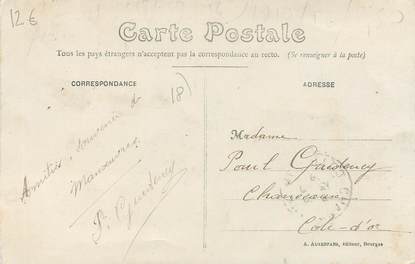 12 €
Carte Postale
Tous les pays étrangers n'acceptent pas la correspondance au recto. (Se renseigner à la poste)
CORRESPONDANCE
ADRESSE
18)
Amitiés, Souvenir de
Manœuvres
P. Gaudency
Madame
Paul Gaudency
Chanceaux
Côte-d'or
A. AUXENFANS, éditeur, Bourges